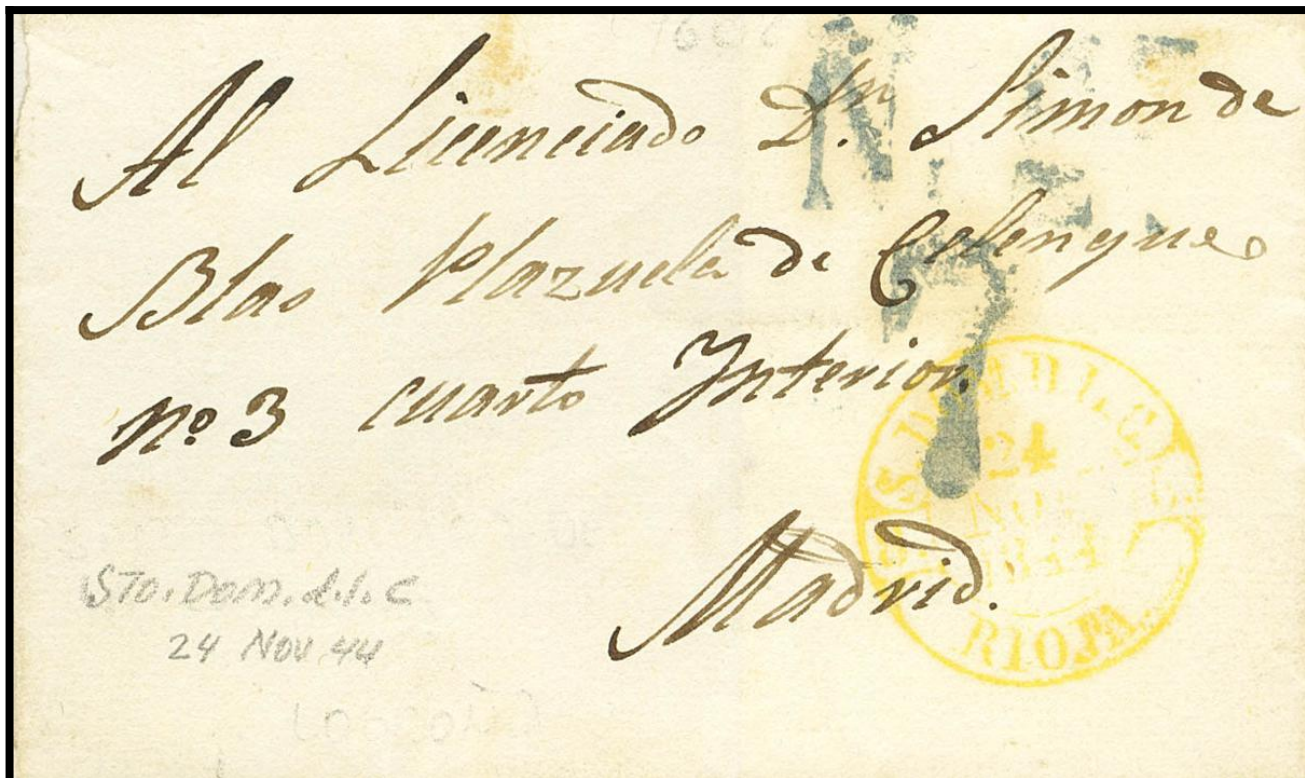 Al Licenciado Dn. Simon de
Blas Plazuela de Celenque
nº 3 cuarto Interior.
Madrid.
7
24
NOV
1844
RIOJA.
STO. Dom. d.l. C
24 NOV 44
LOGROÑO